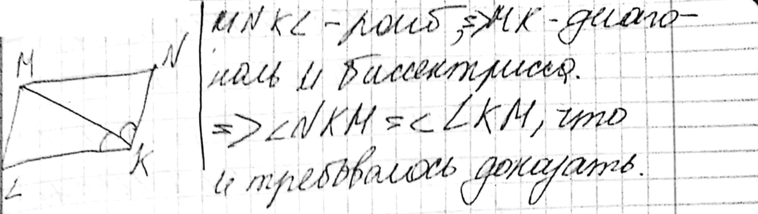 M N
L K
MNKL - ромб, => MK - диаго-
наль и биссектрисса.
=> <NKM = <LKM, что
и требовалось доказать.